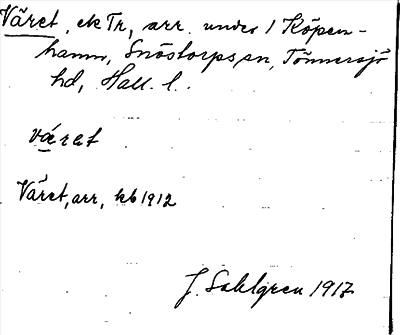 Väret, ek Tr, arr. under 1 Köpen-
hamn, Snöstorps sn, Tönnersjö
hd, Hall. l.
väret
Väret, arr, kb 1912
J. Sahlgren 1917